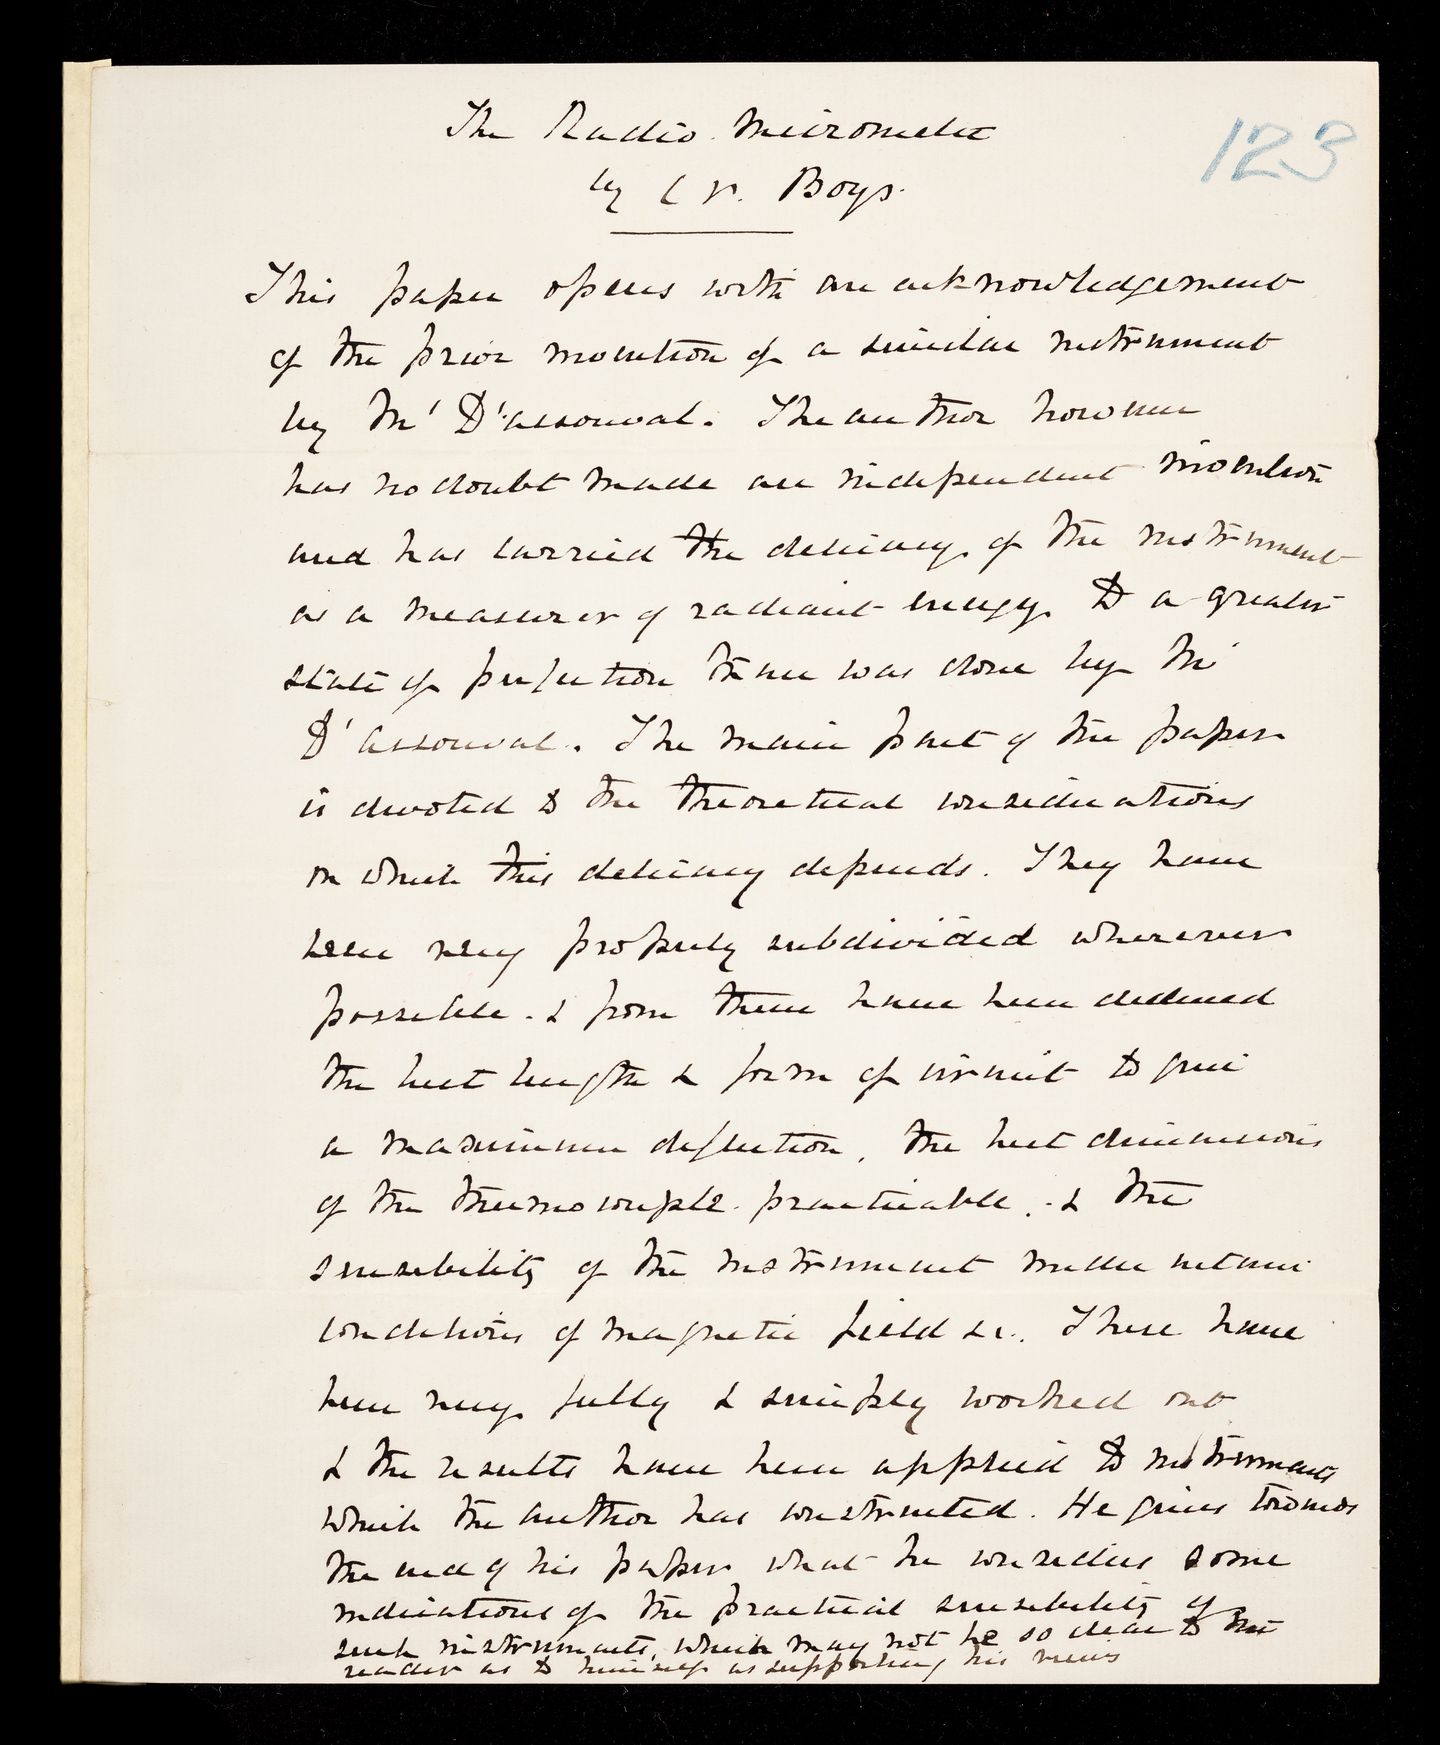 The Radio Micrometer
123
by C V. Boys.
This paper opens with an acknowledgement
of the prior invention of a similar instrument
by Mr D'arsonval. The author however
has no doubt made an independent invention
and has carried the delicacy of the instrument
as a measurer of radiant energy to a greater
state of perfection than was done by Mr
D'arsonval. The main part of the paper
is devoted to the theoretical considerations
on which this delicacy depends. They have
been very properly subdivided wherever
possible. & from them have been deduced
the best length & form of circuit to give
a maximum deflection, the best dimensions
of the thermocouple practicable, & the
sensibility of the instrument under certain
conditions of magnetic field &c. These have
been very fully & simply worked out
& the results have been applied to instruments
which the author has constructed. He gives towards
the end of his paper what he considers some
indications of the practical sensibility of
such instruments, which may not be so clear to the
reader as to himself as supporting his views